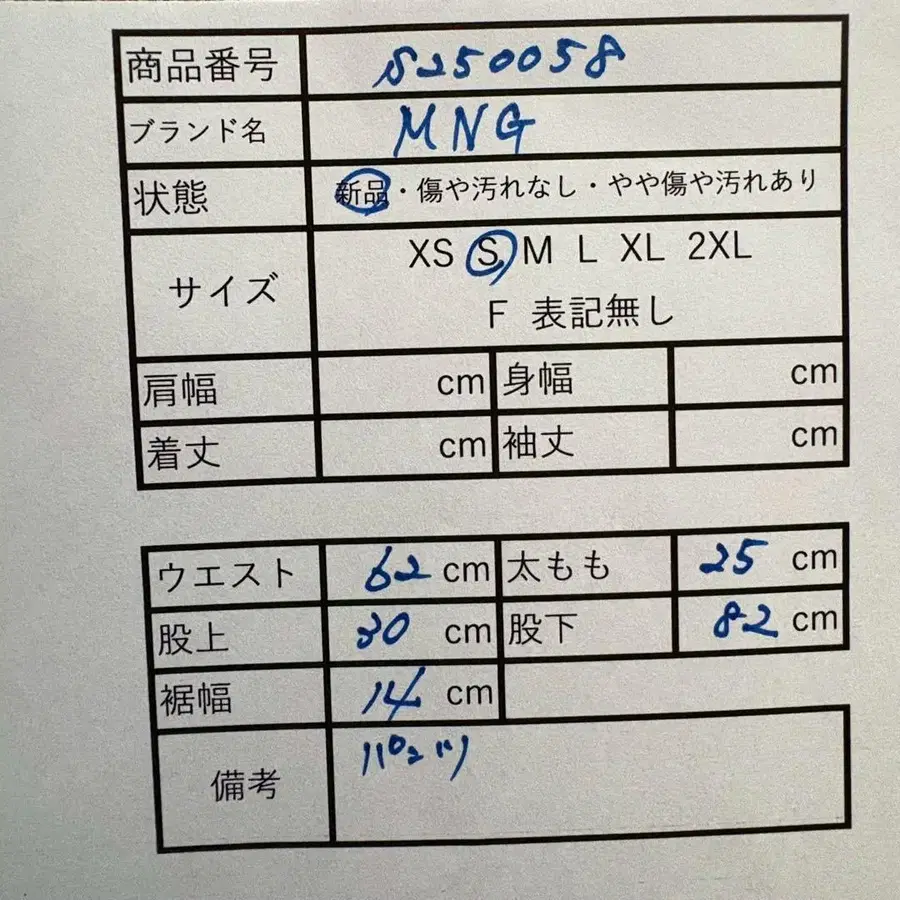 商品番号 S250058
ブランド名 MNG
状態 新品・傷や汚れなし・やや傷や汚れあり
サイズ XS S M L XL 2XL
F 表記無し
肩幅 cm 身幅 cm
着丈 cm 袖丈 cm
ウエスト 62 cm 太もも 25 cm
股上 30 cm 股下 82 cm
裾幅 14 cm
備考